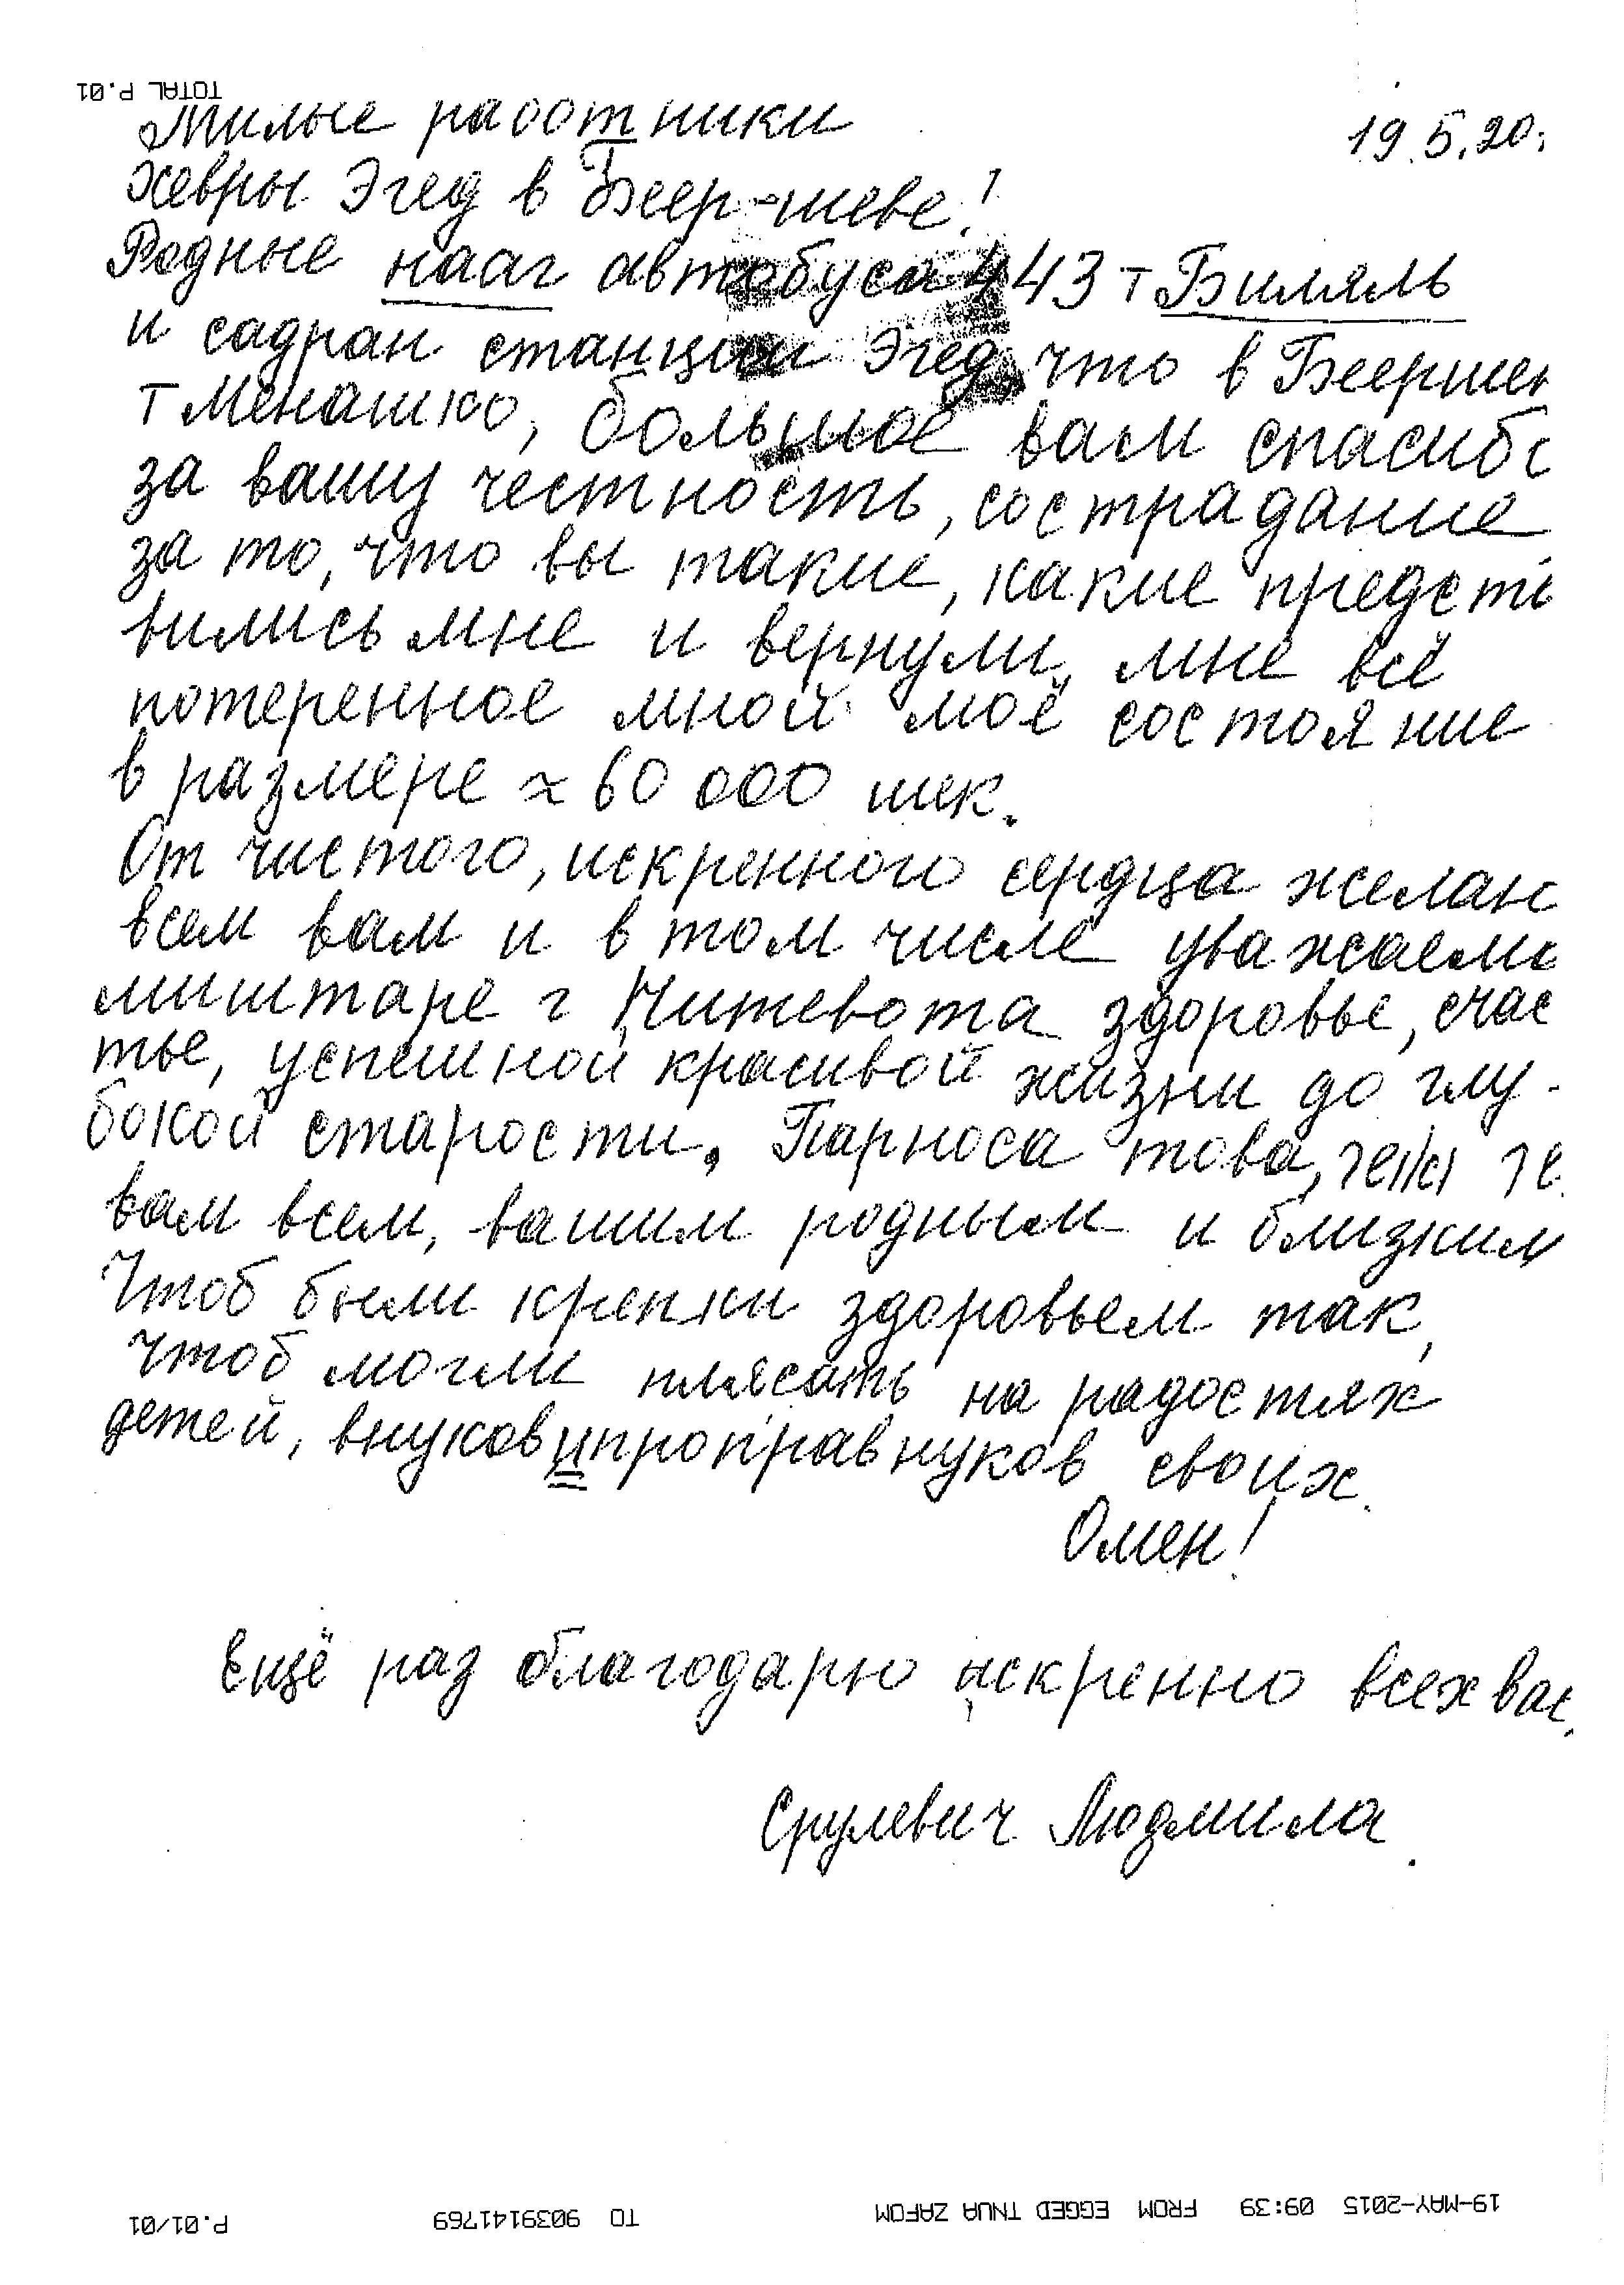 TOTAL P.01
19.5.20.
Милые работники
хевры Эгед в Беер-шеве!
Родные нааг автобуса 443 т Биляль
и садран станции Эгед, что в Беерше
т Менашко, большое вам спасибо
за вашу честность, сострадание
за то, что вы такие, какие предста
вились мне и вернули мне всё
потеренное мной моё состояние
в размере ≈ 60 000 шек.
От чистого, искренного сердца желаю
всем вам и в том числе уважаемо
миштаре г Нитевота здоровье, счас
тье, успешной красивой жизни до глу-
бокой старости. Парноса това,
вам всем, вашим родным и близким
Чтоб были крепки здоровьем так,
чтоб могли плясать на радостях
детей, внуков и проправнуков своих.
Омен!
Ещё раз благодарю искренно всех вас.
Срулевич Людмила.
19-MAY-2015 09:39 FROM EGGED TNUA ZAFOM TO 9039141769 P.01/01